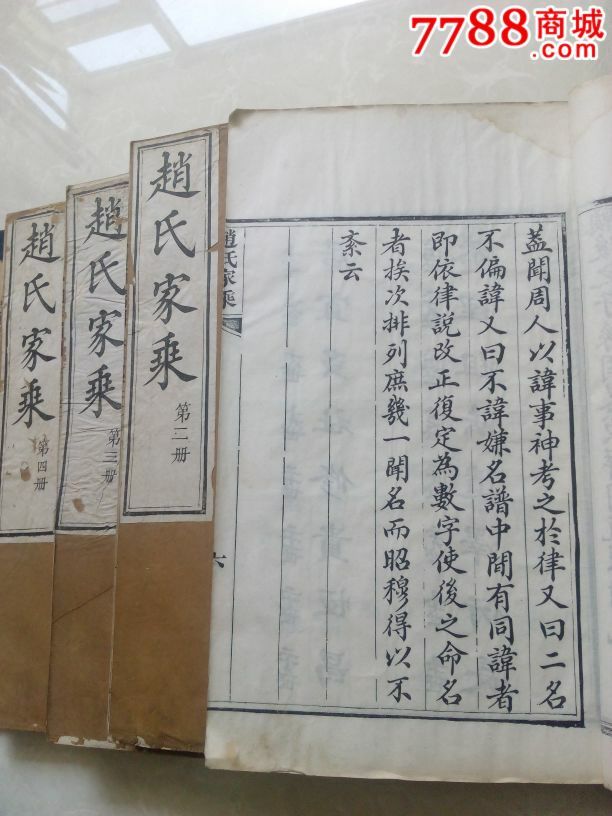 7788商城
.com
蓋聞周人以諱事神考之於律又曰二名
不偏諱又曰不諱嫌名譜中間有同諱者
即依律說改正復定為數字使後之命名
者挨次排列庶幾一聞名而昭穆得以不
紊云
趙氏家乘
六
趙氏家乘
第二册
趙氏家乘
第三册
趙氏家乘
第四册